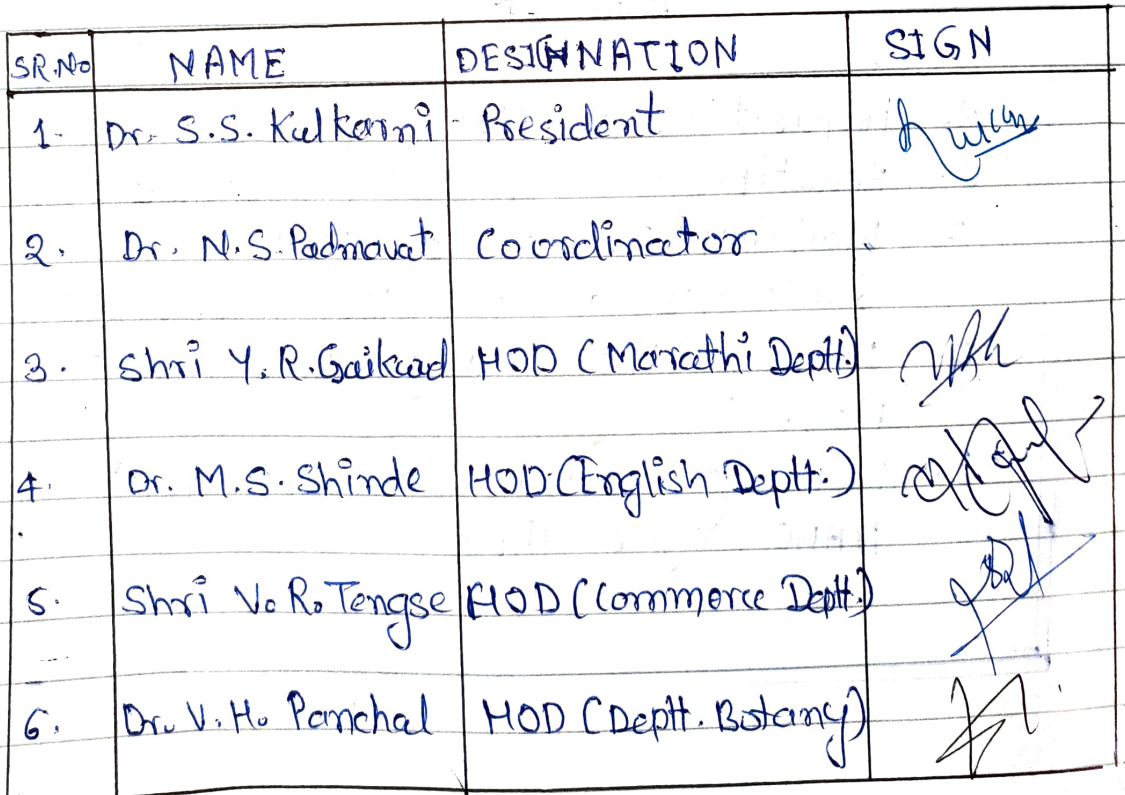 SR.No NAME DESIGNNATION SIGN
1. Dr. S.S. Kulkarni President
2. Dr. N.S. Padmavat Coordinator
3. Shri Y. R. Gaikwad HOD (Marathi Deptt.)
4. Dr. M.S. Shinde HOD (English Deptt.)
5. Shri V. R. Tengse HOD (Commerce Deptt.)
6. Dr. V. H. Panchal HOD (Deptt. Botany)